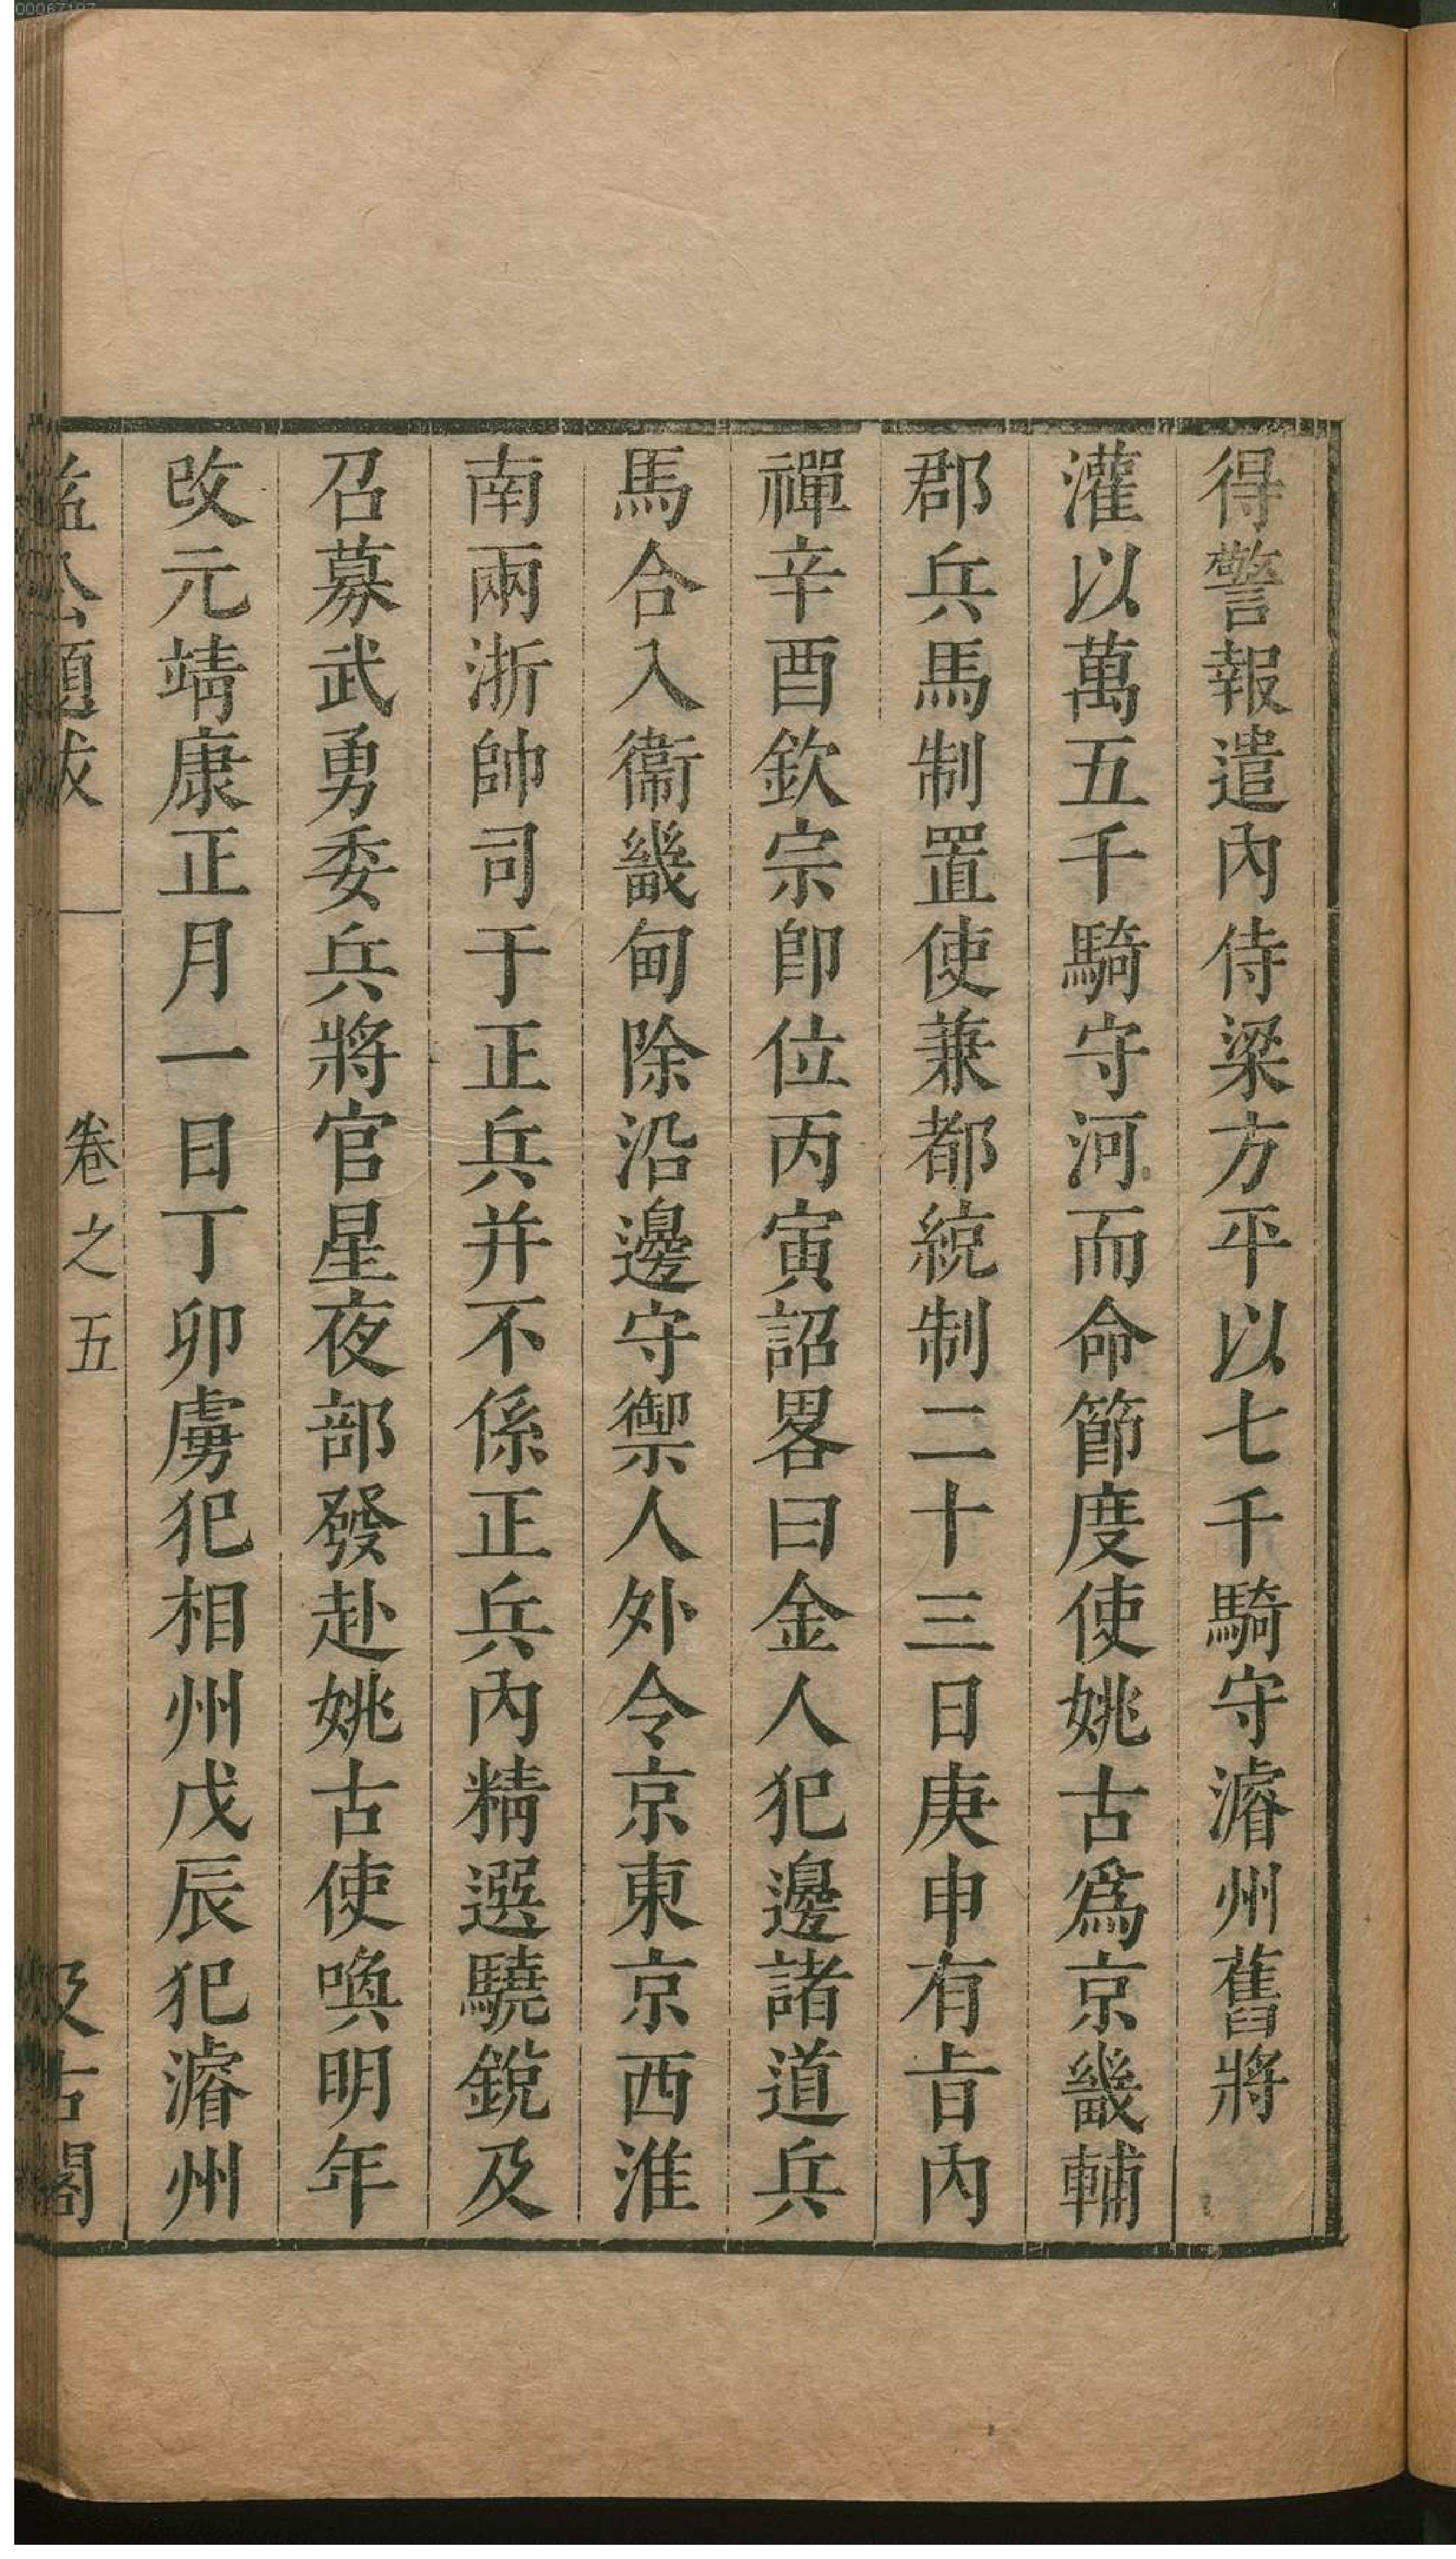 得警報遣內侍梁方平以七千騎守濬州舊將
灌以萬五千騎守河而命節度使姚古爲京畿輔
郡兵馬制置使兼都統制二十三日庚申有旨內
禪辛酉欽宗卽位丙寅詔畧曰金人犯邊諸道兵
馬合入衞畿甸除沿邊守禦人外令京東京西淮
南兩浙帥司于正兵并不係正兵內精選驍銳及
召募武勇委兵將官星夜部發赴姚古使喚明年
改元靖康正月一日丁卯虜犯相州戊辰犯濬州
益公題跋 卷之五 汲古閣